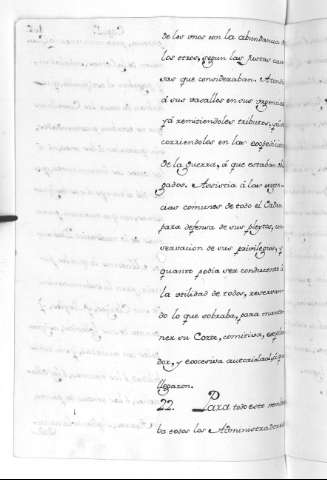 de los unos con la abundancia
los otros, segun las justas cau
sas que consideraban. Atend
á sus vasallos en sus urgencias
yá remitiendoles tributos, yá so
corriendoles en las expedicio
de la guerra, á que estaban obli
gados. Assistia á las urgen
cias comunes de todo el Cabil
para defensa de sus pleytos, con
servacion de sus privilegios, y
quanto podia ser conducente á
la utilidad de todos, reservan
do lo que sobraba, para mante
ner su Corte, comitiva, esplen
dor, y excesiva autoridad, á q
llegaron.
22. Para todo esto nombra
ba todos los Administradores